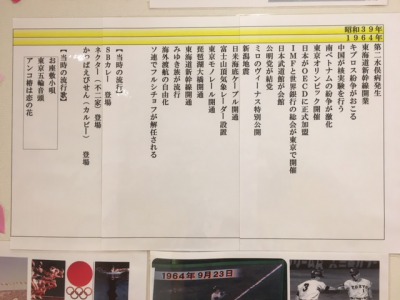 昭和39年
1964年
第二水俣病発生
東海道新幹線開業
キプロス紛争がおこる
中国が核実験を行う
南ベトナムの紛争が激化
東京オリンピック開催
日本がOECDに正式加盟
IMFと世界銀行の総会が東京で開催
日本武道館が会館
公明党が結党
ミロのヴィーナス特別公開
新潟地震
日米海底ケーブル開通
富士山頂気象レーダー設置
東京モノレール開通
琵琶湖大橋開通
みゆき族が流行
海外渡航の自由化
ソ連でフルシチョフが解任される
【当時の流行】
SBカレー 登場
ネクター(不二家) 登場
かっぱえびせん(カルビー) 登場
【当時の流行歌】
お座敷小唄
東京五輪音頭
アンコ椿は恋の花
1964年9月23日